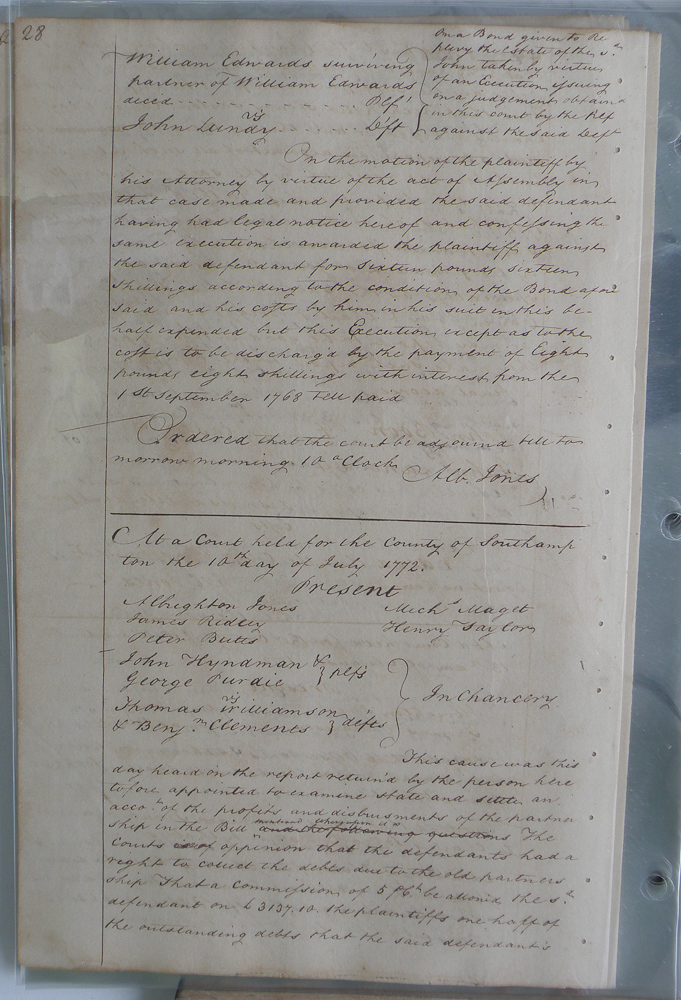 28
William Edwards surviving
partner of William Edwards
decd. - - - - - - - - Plf.
vs
John Lundy - - - - Deft
On a Bond given to Re
plevy the Estate of the s.d
John taken by virtue
of an Execution issuing
on a judgement obtain'd
in this court by the Plf
against the said Deft
On the motion of the plaintiff by
his Attorney by virtue of the act of Assembly in
that case made and provided the said defendant
having had legal notice hereof and confessing the
same execution is awarded the plaintiff against
the said defendant for Sixteen pounds sixteen
shillings according to the condition of the Bond afore
said and his costs by him in his suit in this be-
half expended but this Execution except as to the
cost is to be discharg'd by the payment of Eight
pounds eight shillings with interest from the
1st September 1768 till paid
Ordered that the court be adjourn'd till to
morrow morning 10 oClock
Alb. Jones
At a Court held for the County of Southamp
ton the 10th day of July 1772.
Present
Albrighton Jones Mich.l Maget
James Ridley Henry Taylor
Peter Butts
John Hyndman &
George Purdie } plfs
vs
Thomas Williamson
& Benj.n Clements } defts
In Chancery
This cause was this
day heard on the report return'd by the person here
tofore appointed to examine state and settle an
acco.t of the profits and disbursments of the partner
ship in the Bill and the following questions The
Courts is of oppinion that the defendants had a
right to collect the debts due to the old partners
ship That a commission of 5 be allow'd the s.d
defendant on £3137.10. the plaintiffs one half of
the outstanding debts that the said defendants